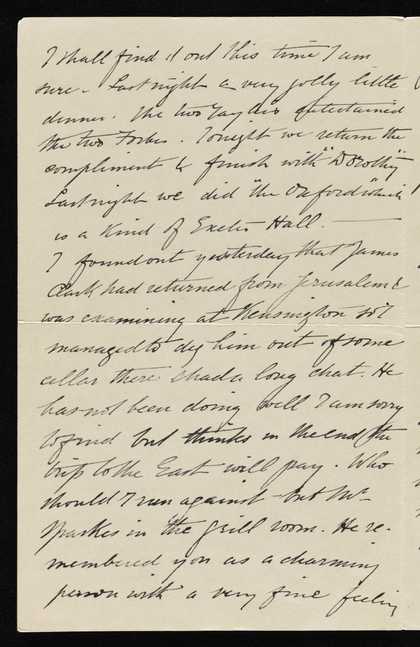 I shall find it out this time I am
sure. Last night a very jolly little
dinner. The two Taylers entertained
the two Forbes. Tonight we return the
compliment & finish with "Dorothy"
Last night we did "the Oxford" which
is a kind of Exeter Hall.
I found out yesterday that James
Clark had returned from Jerusalem &
was examining at Kensington so I
managed to dig him out of some
cellar there & had a long chat. He
has not been doing well I am sorry
to find but thinks in the end the
trip to the East will pay. Who
should I run against but Mr
Sparkes in the grill room. He re-
membered you as a charming
person with a very fine feeling